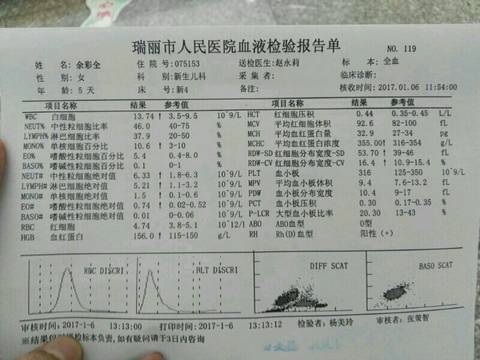 瑞丽市人民医院血液检验报告单
NO. 119
姓 名：余彩全 住 院 号：075153 送检医生：赵永莉 标 本：全血
性 别：女 科 别：新生儿科 采 集 者： 临床诊断：
年 龄：5 天 床 号：新4 备注： 核收时间：2017.01.06 11:54:00
项目名称 结果 参考值 项目名称 结果 参考值
WBC 白细胞 13.74 ↑ 3.5-9.5 10^9/L HCT 红细胞压积 0.44 0.35-0.45 L/L
NEUT% 中性粒细胞百分比 46.0 40-75 % MCV 平均红细胞体积 92.6 82-100 fL
LYMPH% 淋巴细胞比率 37.9 20-50 % MCH 平均血红蛋白量 32.9 27-34 pg
MONO% 单核细胞百分比 10.6 ↑ 3-10 % MCHC 平均血红蛋白浓度 355.00↑ 316-354 g/L
EO% 嗜酸性粒细胞百分比 5.4 0.4-8.0 % RDW-SD 红细胞分布宽度-SD 53.70 ↑ 39-46 fL
BASO% 嗜碱性粒细胞百分比 0.1 0-1 % RDW-CV 红细胞分布宽度-CV 16.4 ↑ 10.9-15.4 %
NEUT# 中性粒细胞绝对值 6.33 ↑ 1.8-6.3 10^9/L PLT 血小板 316 125-350 10^9/L
LYMPH# 淋巴细胞绝对值 5.21 ↑ 1.1-3.2 10^9/L MPV 平均血小板体积 9.4 6-14 fL
MONO# 单核细胞绝对值 1.5 ↑ 0.1-0.6 10^9/L PDW 血小板分布宽度 10.4 9-17 fL
EO# 嗜酸性粒细胞绝对值 0.74 ↑ 0.02-0.52 10^9/L PCT 血小板压积 0.30 0.17-0.35 %
BASO# 嗜碱性粒细胞绝对值 0.01 0-0.06 10^9/L P-LCR 大型血小板比率 20.30 13-43 %
RBC 红细胞 4.74 3.8-5.1 10^12/L ABO ABO血型 O型
HGB 血红蛋白 156.0 ↑ 115-150 g/L RH Rh(D)血型 阳性（+）
RBC DISCRI PLT DISCRI DIFF SCAT BASO SCAT
审核时间:2017-1-6 13:13:00 打印时间:2017-1-6 13:13:12 检验者：杨美玲 审核者：张萦智
※结果仅对所检标本负责,如有疑问请于3日内咨询